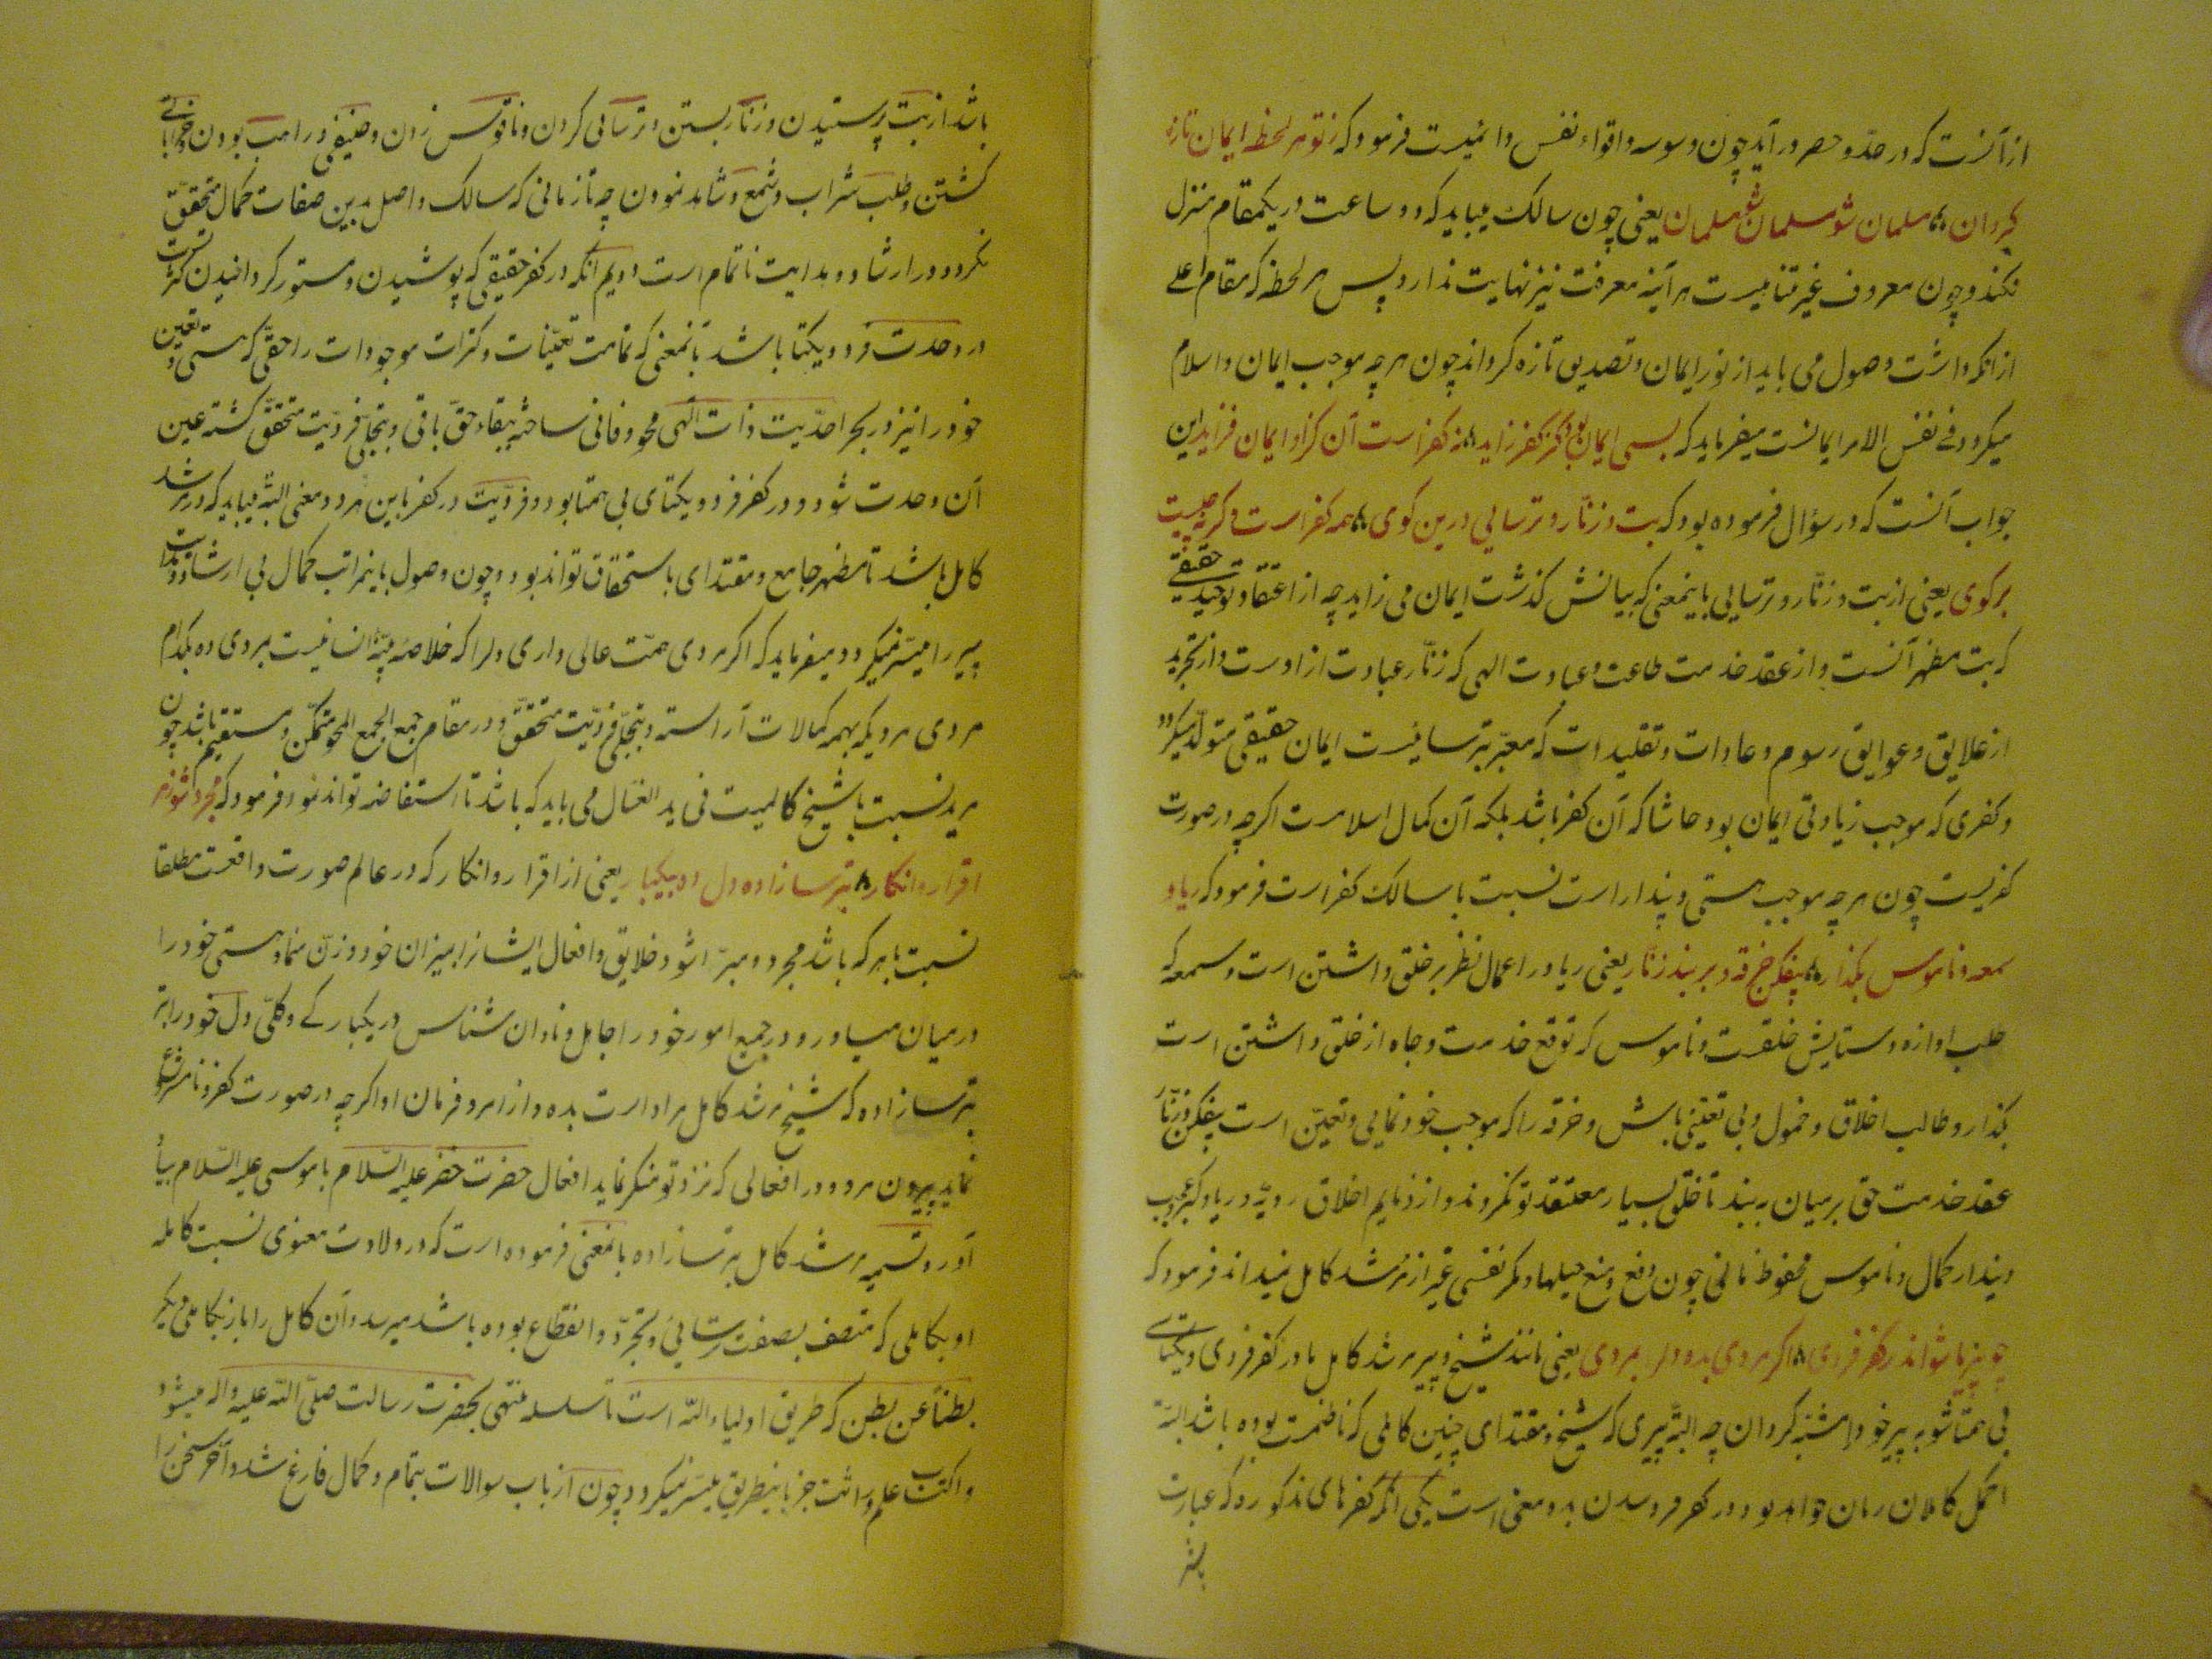 از آنزت که در حدّ و حصر در آید چون وسوسه و اقواء نفس دانمیست فرمود که ز نو هر لحظه ایمان تازه
کردان مسلمان شو مسلمان شو مسلمان یعنی چون سالک میباید که دو ساعت در یکمقام منزل
نکند و چون معروف غیر متناهیست هر آینه معرفت نیز نهایت ندارد پس هر لحظه که مقام اعلی
از انکه داشت وصول می یابد از نور ایمان و تصدیق تازه کرداند چون هر چه موجب ایمان و اسلام
میکردد فی نفس الامر ایمانست میفرماید که بسی ایمان بود کز کفر زاید نه کفر است آن کزو ایمان فزاید این
جواب آنست که در سؤال فرموده بود که بت و زنّار و ترسایی درین کوی همه کفر است و کر نه چیست
بر کوی یعنی از بت و زنّار و ترسایی باینمعنی که بیانش کذشت ایمان می زاید چه از اعتقاد توحید حقیقی
که بت مظهر آنست و از عقد خدمت طاعت و عبادت الهی که زنّار عبارت از اوست و از تجرید
از علایق و عوایق رسوم و عادات و تقلیدات که معبّر بترسائیست ایمان حقیقی متولّد میکردد
و کفری که موجب زیادتی ایمان بود حاشا که آن کفر باشد بلکه آن کمال اسلامست اکر چه در صورت
کفریست چون هر چه موجب هستی و پندار است نسبت با سالک کفر است فرمود که ریا و
سمعه و ناموس بکذار بیفکن خرقه و بر بند زنّار یعنی ریا در اعمال نظر بر خلق داشتن است و سمعه که
طلب اوازه و ستایش خلقست و ناموس که توقع خدمت و جاه از خلق داشتن است
بکذار و طالب اخلاق و خمول و بی تعیّنی باش و خرقه را که موجب خودنمایی و تعیّن است بیفکن و زنّار
عقد خدمت حق بر میان ببند تا خلق بسیار معتقد تو نکردند و از ذمایم اخلاق ردیّه و ریا و کبر و عجب
و پندار کمال و ناموس محفوظ مانی چون دفع و منع حیلها و مکر نفسی غیر از مرشد کامل نمیداند فرمود که
چو پیر ما شو اندر کفر فردی اکر مردی بده دل را بمردی یعنی مانند شیخ و پیر مرشد کامل ما در کفر فردی و یکتای
بی همتا شو به پیر خود را مشتبه کردان چه البتّه پیری که شیخ و مقتدای چنین کاملی که ناظمست بوده باشد البتّه
اکمل کاملان زمان خواهد بود و در کفر فرد بودن بدو معنی است یکی انکه کفرهای مذکوره که عبارت
باشد
باشد از بت پرستیدن و زنّار بستن و ترسائی کردن و ناقوس زدن و حنیفی و راهب بودن و خراباتی
کشتن و طلب شراب و شمع و شاهد نمودن چه تا زمانی که سالک واصل بدین صفات کمال متحقّق
نکردد در ارشاد و هدایت ناتمام است دویم آنکه در کفر حقیقی که پوشیدن و مستور کردانیدن کثرتست
در وحدت فرد و یکتا باشد بانمعنی که تمامت تعیّنات و کثرات موجودات را حتّی که هستی و تعیّن
خود را نیز در بحر احدّیت ذات الهی محو و فانی ساخته ببقاء حقّ باقی و بتجلّی فردّیت متحقّق کشته عین
آن وحدت شود و در کفر فرد و یکتای بی همتا بود و فردّیت در کفر باین هر دو معنی البتّه میباید که در مرشد
کامل باشد تا مظهر جامع و مقتدای باستحقاق تواند بود و چون وصول باینمراتب کمال بی ارشاد و هدایت
پیر را میسّر نمیکردد میفرماید که اکر مردی همّت عالی داری دل را که خلاصه بنیّه انسانیست بمردی ده بکدام
مردی مردی که بهمه کمالات آراسته و بتجلّی فردّیت متحقّق و در مقام جمع الجمع المحو متمکّن و مستقیم باشد چون
مرید نسبت با شیخ کالمیت فی ید الغسّال می باید که باشد تا استفاضه تواند نمود فرمود که مجرّد شو ز هر
اقرار و انکار بترسازاده دل ده بیکبار یعنی از اقرار و انکار که در عالم صورت واقعست مطلقا
نسبت با هر که باشد مجرد و مبرّا شو و خلایق و افعال ایشانرا بمیزان خود وزن منما و هستی خود را
در میان میاور و در جمیع امور خود را جاهل و نادان شناس و بیکبارکی و کلّی دل خود را بتر
بترسازاده که شیخ مرشد کامل مراد است بده و از امر و فرمان او اکر چه در صورت کفر و نامشروع
نماید بیرون مرو و در افعالی که نزد تو منکر نماید افعال حضرت خضر علیه السّلام با موسی علیه السّلام بیاد
آور و تسمیه مرشد کامل بترسازاده بانمعنی فرموده است که در ولادت معنوی نسبت کامله
او بکاملی که متصف بصفت ترسایی و تجرّد و انقطاع بوده باشد میرسد و آن کامل را باز بکاملی دیکر
بطناً عن بطن که طریق اولیاء الله است تا سلسله منتهی بحضرت رسالت صلّی الله علیه و اله میشود
و اکتساب علم وراثت جز باینطریق میسّر نمیکردد و چون از باب سوالات بتمام و کمال فارغ شد و آخر سخن را